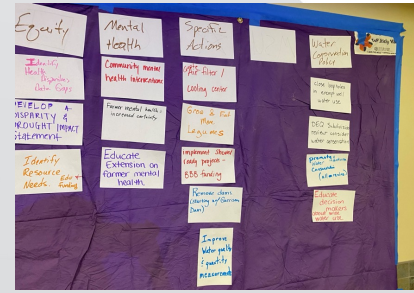 Equity
Identify
Health
Disparities
Data Gaps
DEVELOP A
DISPARITY &
DROUGHT IMPACT
Statement
Identify
Resource
Needs
funding
Mental
Health
Community mental
health interventions
Farmer mental health
increased certainty
Educate
Extension on
farmer mental
health
Specific
Actions
Air filter /
Cooling center
Grow & Eat
More
Legumes
implement shovel
ready projects -
BBB funding
Remove dams
Dam)
Improve
Water quality
& quantity
measurement
Water
Conservation
Policy
close loopholes
in exempt well
water use
water conservation
promote
Educate
decision
makers
about wise
water use